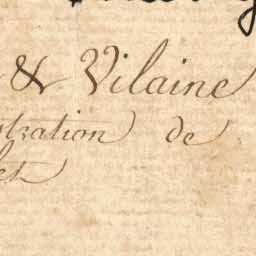 & Vilaine
stration de
let